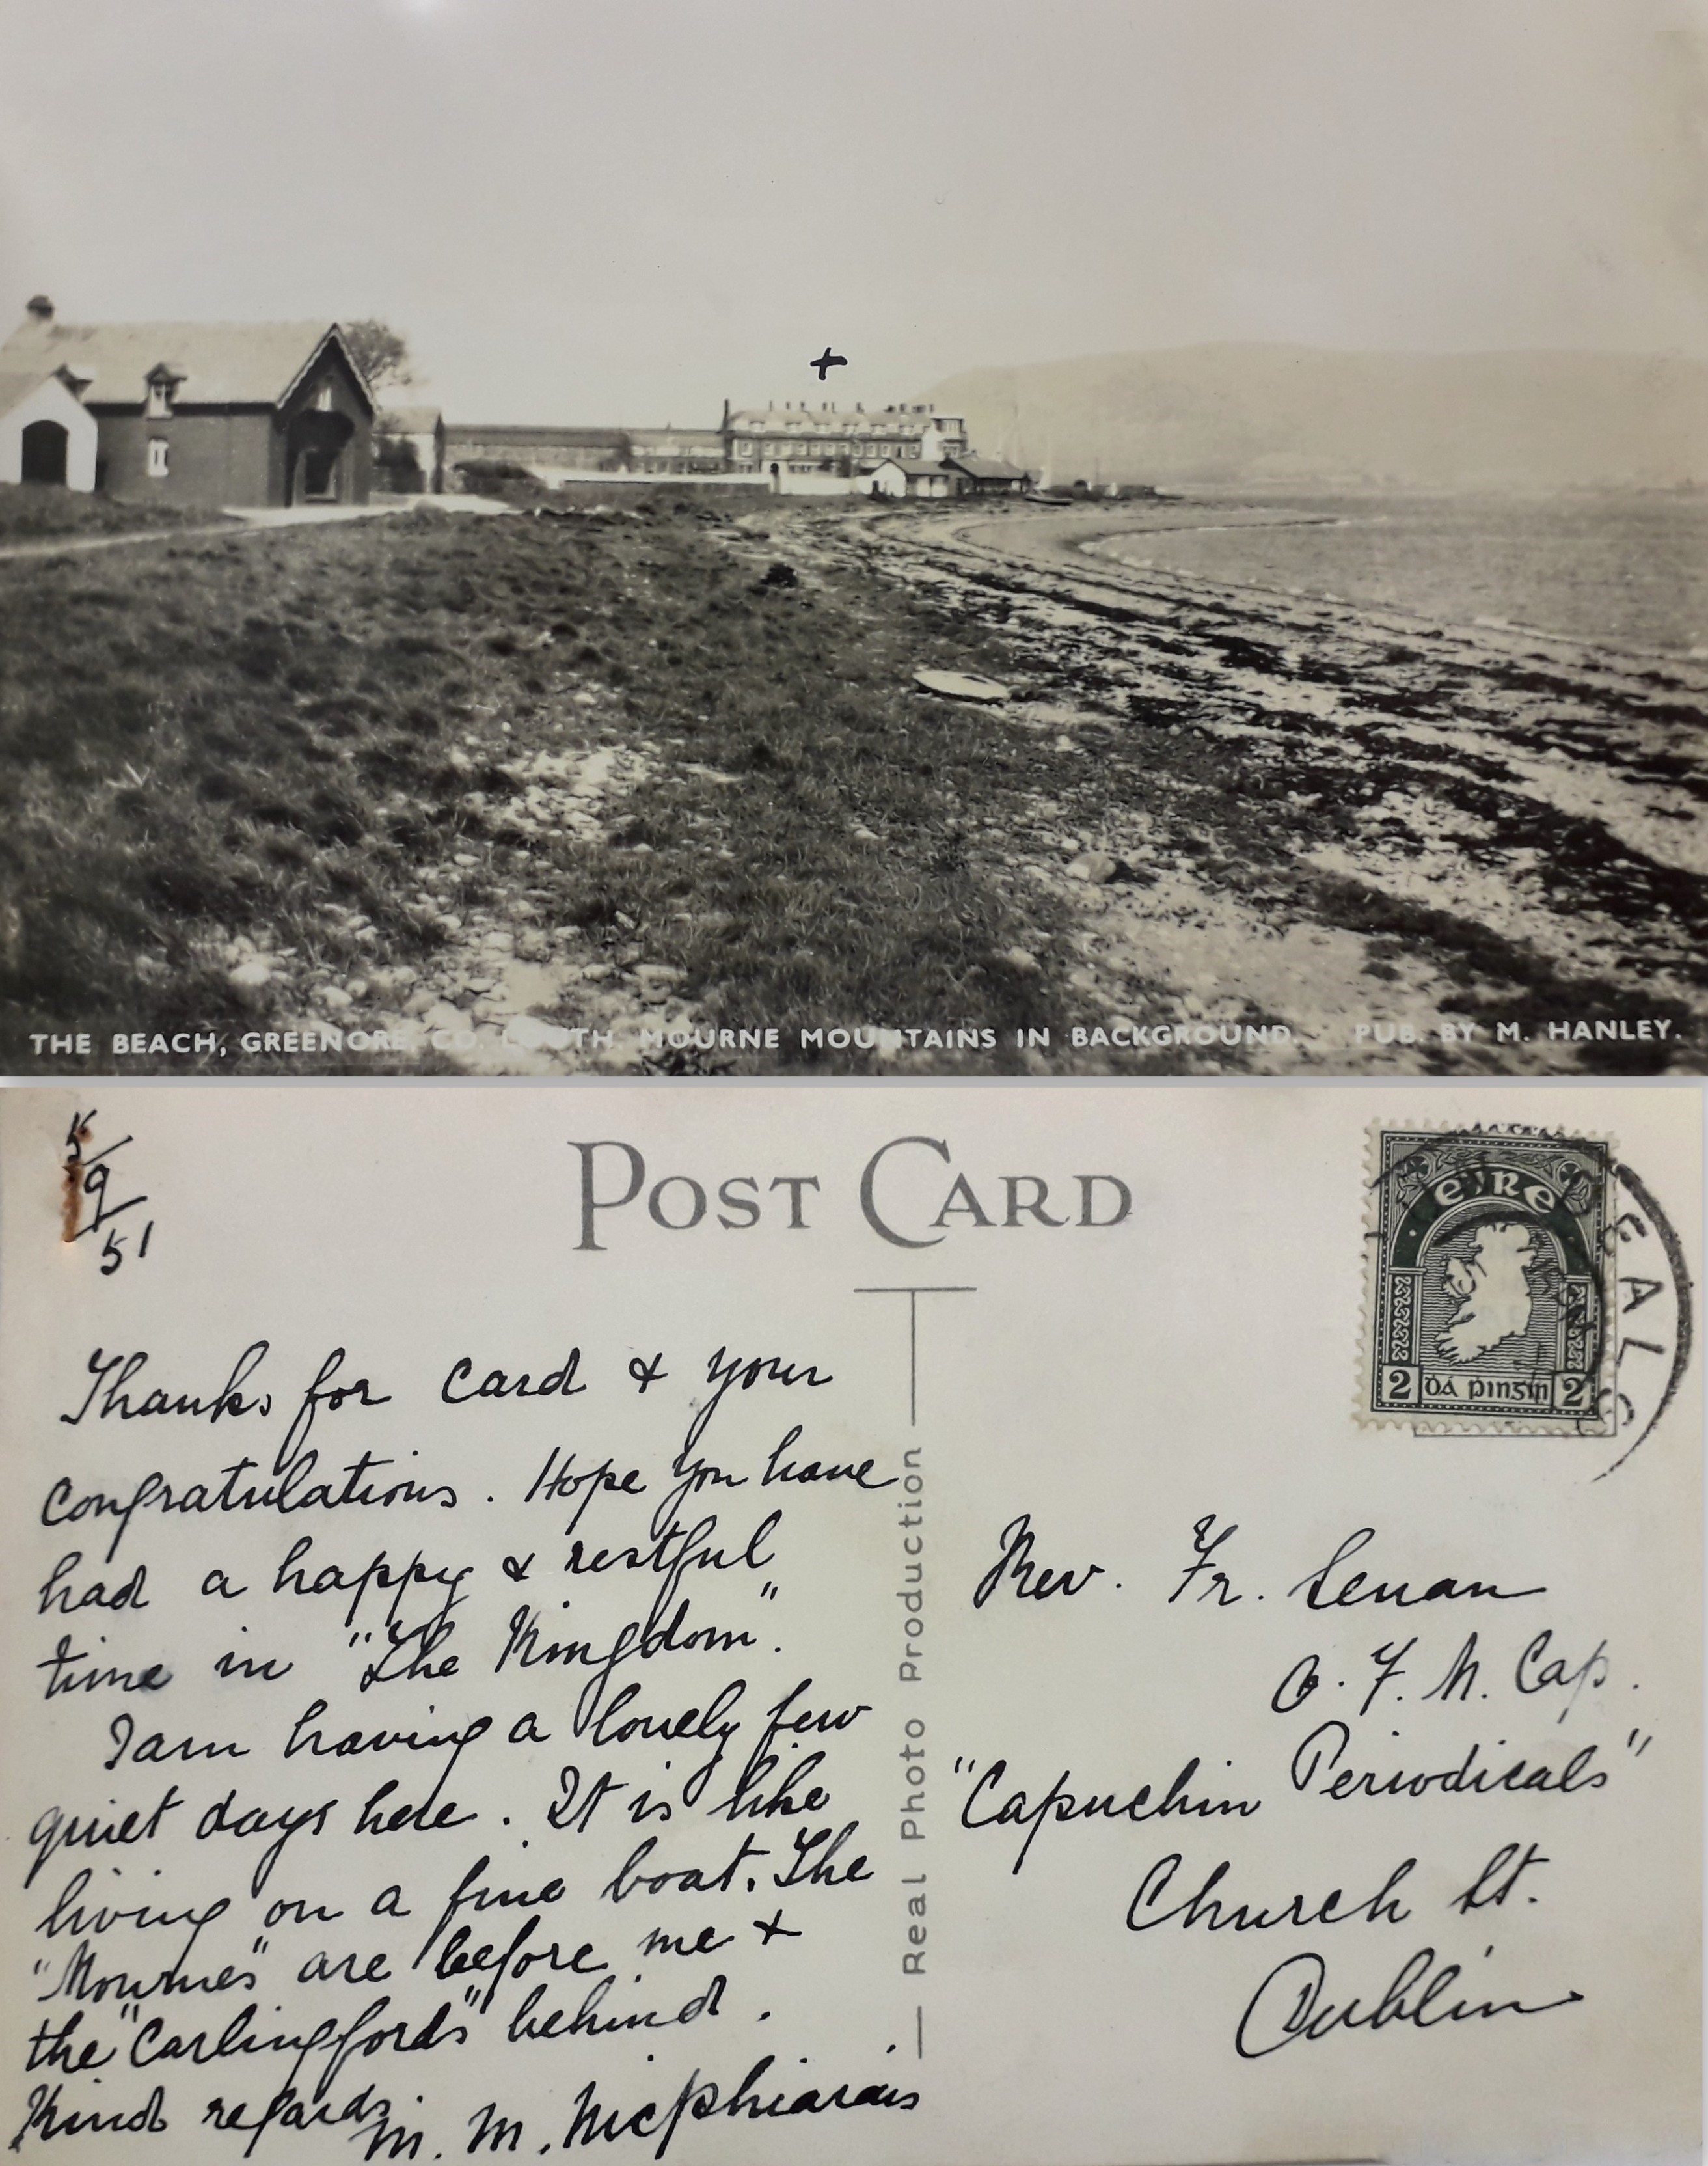 +
THE BEACH, GREENORE, CO. LOUTH. MOURNE MOUNTAINS IN BACKGROUND. PUB. BY M. HANLEY.
5/9/51
POST CARD
Thanks for card & your
congratulations. Hope you have
had a happy & restful
time in "The Kingdom".
I am having a lovely few
quiet days here. It is like
living on a fine boat. The
"Mournes" are before me &
the "Carlingfords" behind.
Kind regards,
M. M. NicPhiarais
Real Photo Production
éire
2 dá pingin 2
EALS
Rev. Fr. Senan
O. F. M. Cap.
"Capuchin Periodicals"
Church St.
Dublin